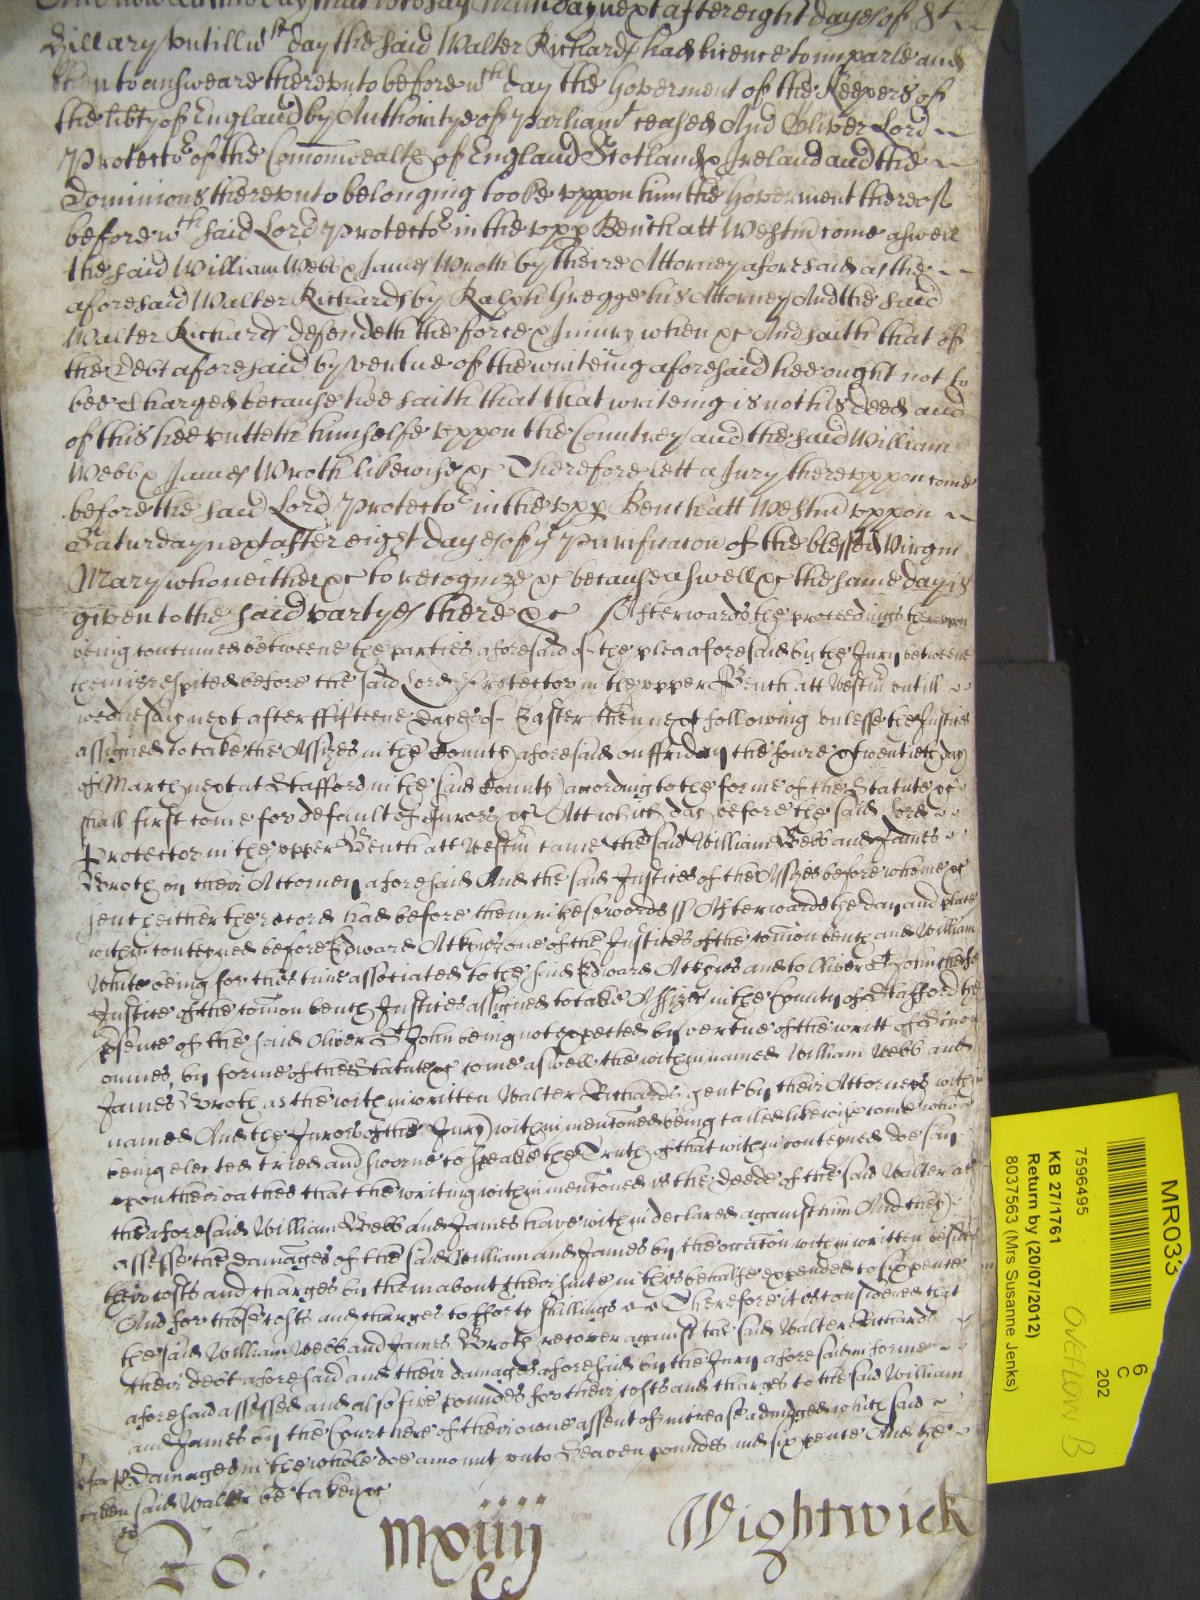 And now att this day that is to say Munday next after eight dayes of St
Hillary untill wch day the said Walter Richards had licence to imparle and
then to answeare thereunto before wch day the Goverment of the Keepers of
the libty of England by Authoritye of Parliamt ceased And Oliver Lord
Protector of the Comonwealth of England Scotland & Ireland and the
Dominions thereunto belonging tooke uppon him the Goverment thereof
before wch said Lord Protector in the upp Bench att Westm come aswell
the said William Webb & James Wroth by theire Attorney aforesaid as the
aforesaid Walter Richards by Ralph Gregge his Attorney And the said
Walter Richards defendeth the force & Injury when &c And saith that of
the Debt aforesaid by vertue of the writeing aforesaid hee ought not to
bee Charged because hee saith that that writeing is not his deed and
of this hee putteth himselfe uppon the Countrey and the said William
Webb & James Wroth likewise &c Therefore lett a Jury thereuppon come
before the said Lord Protector in the upp Bench att Westm uppon
Saturday next after eight dayes of ye Purificacon of the blessed Virgin
Mary who neither &c to recognize &c because aswell &c the same day is
given to the said partyes there &c Afterwards the proceedings thereupon
being continued betweene the parties aforesaid of the plea aforesaid by the Jury betweene
them is respited before the said Lord Protector in the upper Bench att Westm untill
wednesday next after ffifteene dayes of Easter then next following unlesse the Justices
assigned to take the Assizes in the County aforesaid on ffriday the foure & twentieth day
of March next at Stafford in the said County according to the forme of the Statute &c
shall first come for default of Jurors &c Att which day before the said Lord
Protector in the upper Bench att Westm came the said William Webb and James
Wroth by their Attorney aforesaid And the said Justices of the Assizes before whome &c
sent hither the record had before them in these words ss Afterwards the day and place
within conteyned before Edward Atkyns one of the Justices of the comon bench and William
White being for this time associated to the said Edward Atkyns and to Oliver St John cheife
Justice of the comon bench Justices assigned to take Assizes in the County of Stafford the
psence of the said Oliver St John being not expected by vertue of the writt of Si non
omnes, by forme of the Statute &c come aswell the within named William Webb and
James Wroth as the within written Walter Richards gent by their Attorneys within
named And the Jurors of the Jury within mentoned being called likewise come who
being elected tried and sworne to speake the Truth of that within conteyned doe say
upon their oathes that the writing within mentoned is the deede of the said Walter as
the aforesaid William Webb and James have within declared against him And they
assesse the damages of the said William and James by the occaton within written besides
their costs and charges by them about their suite in this behalfe expended to sixpence
And for those costs and charges to fforty shillings Therefore it is considered that
the said William Webb and James Wroth recover against the said Walter Richards
their debt aforesaid and their damages aforesaid by the Jury aforesaid in forme
aforesaid assessed and also five poundes for their costs and charges to the said William
and James by the Court here of their owne assent of increase adiudged which said
Damages in the whole doe amount unto Seaven poundes and sixpence And the
said Walter be taken &c
Ro:
mxiiij
Wightwick
MR033
7596495
KB 27/1761
Return by (20/07/2012)
8037563 (Mrs Susanne Jenks)
6
C
202
OVEFLOW B